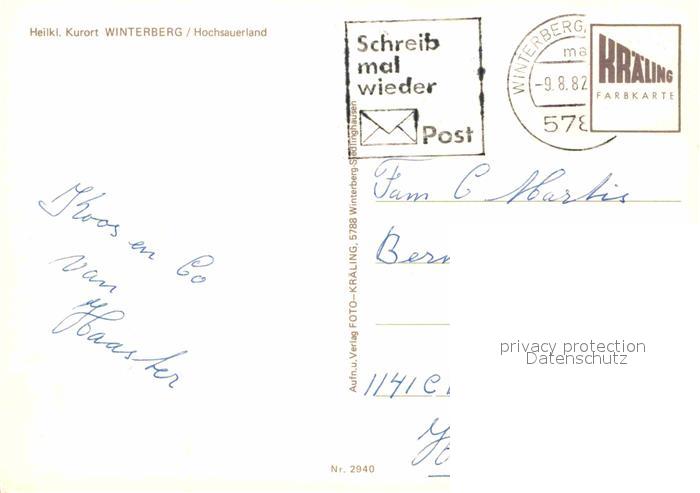 Heilkl. Kurort WINTERBERG / Hochsauerland
Schreib
mal
wieder
Post
WINTERBERG,
ma
-9.8.82
578
KRÄLING
FARBKARTE
Koos en Co
van
Haaster
Aufn.u.Verlag FOTO-KRÄLING, 5788 Winterberg-Siedlinghausen
Fam C Martis
Bern
1141 C
privacy protection
Datenschutz
Nr. 2940